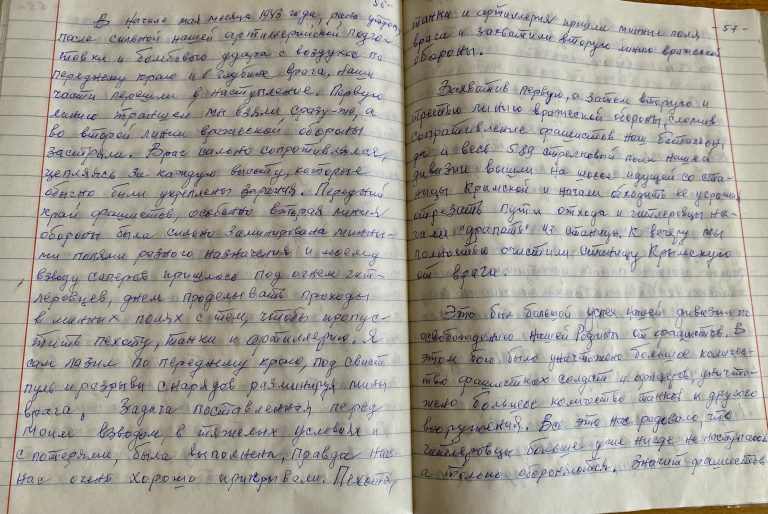 - 56 -
В начале мая месяца 1943 года, рано утром,
после сильной нашей артиллерийской подго-
товки и бомбового удара с воздуха по
переднему краю и в глубине врага, наши
части перешли в наступление. Первую
линию траншеи мы взяли сразу-же, а
во второй линии вражеской обороны
застряли. Враг сильно сопротивлялся,
цепляясь за каждую высоту, которые
обычно были укреплены заранее. Передний
край фашистов, особенно вторая линия
обороны была сильно заминирована минны-
ми полями разного назначения и моему
взводу саперов пришлось под огнем гит-
леровцев, днем проделывать проходы
в минных полях с тем, чтобы пропус-
тить пехоту, танки и артиллерию. Я
сам лазил по переднему краю, под свист
пуль и разрывы снарядов разминируя мины
врага. Задача поставленная перед
моим взводом, в тяжелых условиях и
с потерями, была выполнена, правда нас
нас очень хорошо прикрывали. Пехота,
- 57 -
танки и артиллерия прошли минные поля
врага и захватили вторую линию вражеской
обороны.
Захватив первую, а затем вторую и
третью линию вражеской обороны, сломив
сопротивление фашистов наш батальон,
да и весь 589 стрелковый полк нашей
дивизии вышли на шоссе идущей со ста-
ницы Крымской и начали обходить ее угрожая
отрезать пути отхода и гитлеровцы на-
чали "драпать" из станицы. К вечеру мы
полностью очистили станицу Крымскую
от врага.
Это был большой успех нашей дивизии по
освобождению нашей Родины от фашистов. В
этом бою было уничтожено большое количес-
тво фашистских солдат и офицеров, уничто-
жено большое количество танков и другого
вооружения. Все это нас радовало, что
гитлеровцы больше уже нигде не наступают
а только обороняются. Значит фашистов